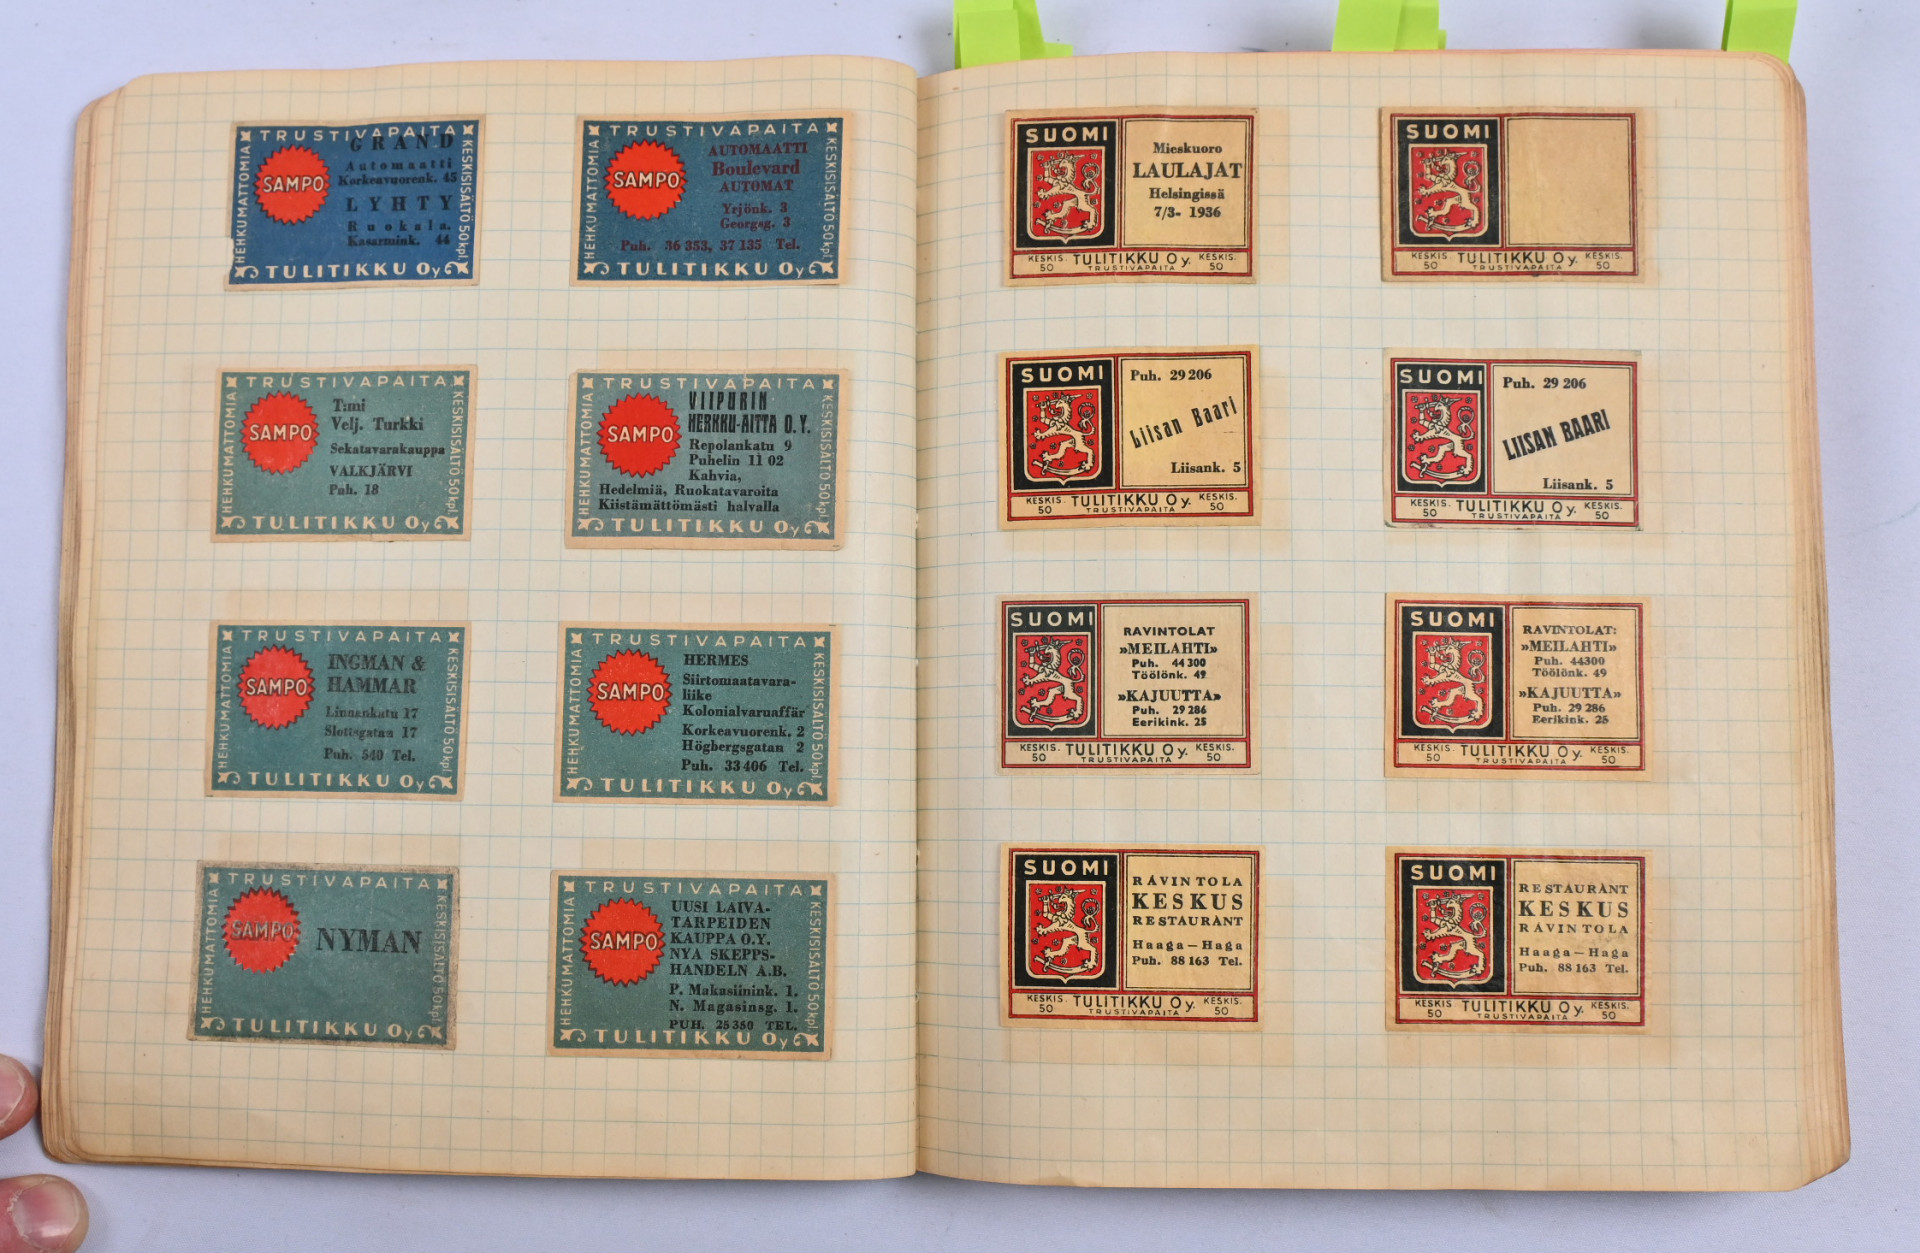 TRUSTIVAPAITA
HEHKUMATTOMIA
SAMPO
GRAND
Automaatti
Korkeavuorenk. 45
LYHTY
Ruokala.
Kasarmink. 44
KESKISISÄLTÖ 50 kpl
TULITIKKU Oy
TRUSTIVAPAITA
HEHKUMATTOMIA
SAMPO
AUTOMAATTI
Boulevard
AUTOMAT
Yrjönk. 3
Georgsg. 3
Puh. 36 353, 37 135 Tel.
KESKISISÄLTÖ 50 kpl
TULITIKKU Oy
TRUSTIVAPAITA
HEHKUMATTOMIA
SAMPO
T:mi
Velj. Turkki
Sekatavarakauppa
VALKJÄRVI
Puh. 18
KESKISISÄLTÖ 50 kpl
TULITIKKU Oy
TRUSTIVAPAITA
HEHKUMATTOMIA
SAMPO
VIIPURIN
HERKKU-AITTA O.Y.
Repolankatu 9
Puhelin 11 02
Kahvia,
Hedelmiä, Ruokatavaroita
Kiistämättömästi halvalla
KESKISISÄLTÖ 50 kpl
TULITIKKU Oy
TRUSTIVAPAITA
HEHKUMATTOMIA
SAMPO
INGMAN &
HAMMAR
Linnankatu 17
Slottsgatan 17
Puh. 540 Tel.
KESKISISÄLTÖ 50 kpl
TULITIKKU Oy
TRUSTIVAPAITA
HEHKUMATTOMIA
SAMPO
HERMES
Siirtomaatavara-
liike
Kolonialvaruaffär
Korkeavuorenk. 2
Högbergsgatan 2
Puh. 33 406 Tel.
KESKISISÄLTÖ 50 kpl
TULITIKKU Oy
TRUSTIVAPAITA
HEHKUMATTOMIA
SAMPO
NYMAN
KESKISISÄLTÖ 50 kpl
TULITIKKU Oy
TRUSTIVAPAITA
HEHKUMATTOMIA
SAMPO
UUSI LAIVA-
TARPEIDEN
KAUPPA O.Y.
NYA SKEPPS-
HANDELN A.B.
P. Makasiinink. 1.
N. Magasinsg. 1.
PUH. 25 350 TEL.
KESKISISÄLTÖ 50 kpl
TULITIKKU Oy
SUOMI
Mieskuoro
LAULAJAT
Helsingissä
7/3- 1936
KESKIS. 50 TULITIKKU Oy. KESKIS. 50
TRUSTIVAPAITA
SUOMI
KESKIS. 50 TULITIKKU Oy. KESKIS. 50
TRUSTIVAPAITA
SUOMI
Puh. 29 206
Liisan Baari
Liisank. 5
KESKIS. 50 TULITIKKU Oy. KESKIS. 50
TRUSTIVAPAITA
SUOMI
Puh. 29 206
LIISAN BAARI
Liisank. 5
KESKIS. 50 TULITIKKU Oy. KESKIS. 50
TRUSTIVAPAITA
SUOMI
RAVINTOLAT
»MEILAHTI»
Puh. 44 300
Töölönk. 49
»KAJUUTTA»
Puh. 29 286
Eerikink. 25
KESKIS. 50 TULITIKKU Oy. KESKIS. 50
TRUSTIVAPAITA
SUOMI
RAVINTOLAT:
»MEILAHTI»
Puh. 44300
Töölönk. 49
»KAJUUTTA»
Puh. 29 286
Eerikink. 25
KESKIS. 50 TULITIKKU Oy. KESKIS. 50
TRUSTIVAPAITA
SUOMI
RAVINTOLA
KESKUS
RESTAURANT
Haaga–Haga
Puh. 88 163 Tel.
KESKIS. 50 TULITIKKU Oy. KESKIS. 50
TRUSTIVAPAITA
SUOMI
RESTAURANT
KESKUS
RAVINTOLA
Haaga–Haga
Puh. 88 163 Tel.
KESKIS 50 TULITIKKU Oy. KESKIS. 50
TRUSTIVAPAITA